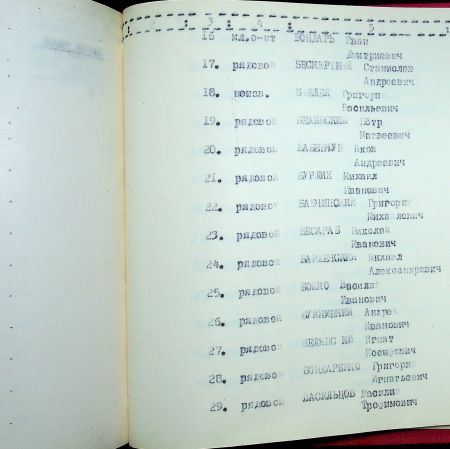 3 4 5
16 мл.с-нт БОНДАРЬ Иван
Дмитриович
17. рядовой БЕСМЕРТНЫЙ Станислав
Андреевич
18. неизв. Григори
Васильевич
19. рядовой БЕЛИНСКИЙ Пётр
Матвеевич
20. рядовой БАБЕНЧУК Яков
Андреевич
21. рядовой БУРЛИК Михаил
Иванович
22. рядовой БАБЧИНСКИЙ Григори
Михайлович
23. рядовой БЕСАРАБ Николай
Иванович
24. рядовой БАРЖЕНСКИЙ Михаил
Александрович
25. рядовой БОЖКО Василий
Иванович
26. рядовой БУЙНИЦКИЙ Андре
Иванович
27. рядовой Игнат
Иосифович
28. рядовой БОНДАРЕНКО Григори
Игнатьевич
29. рядовой ВАСИЛЬЦОВ Васили
Трофимович